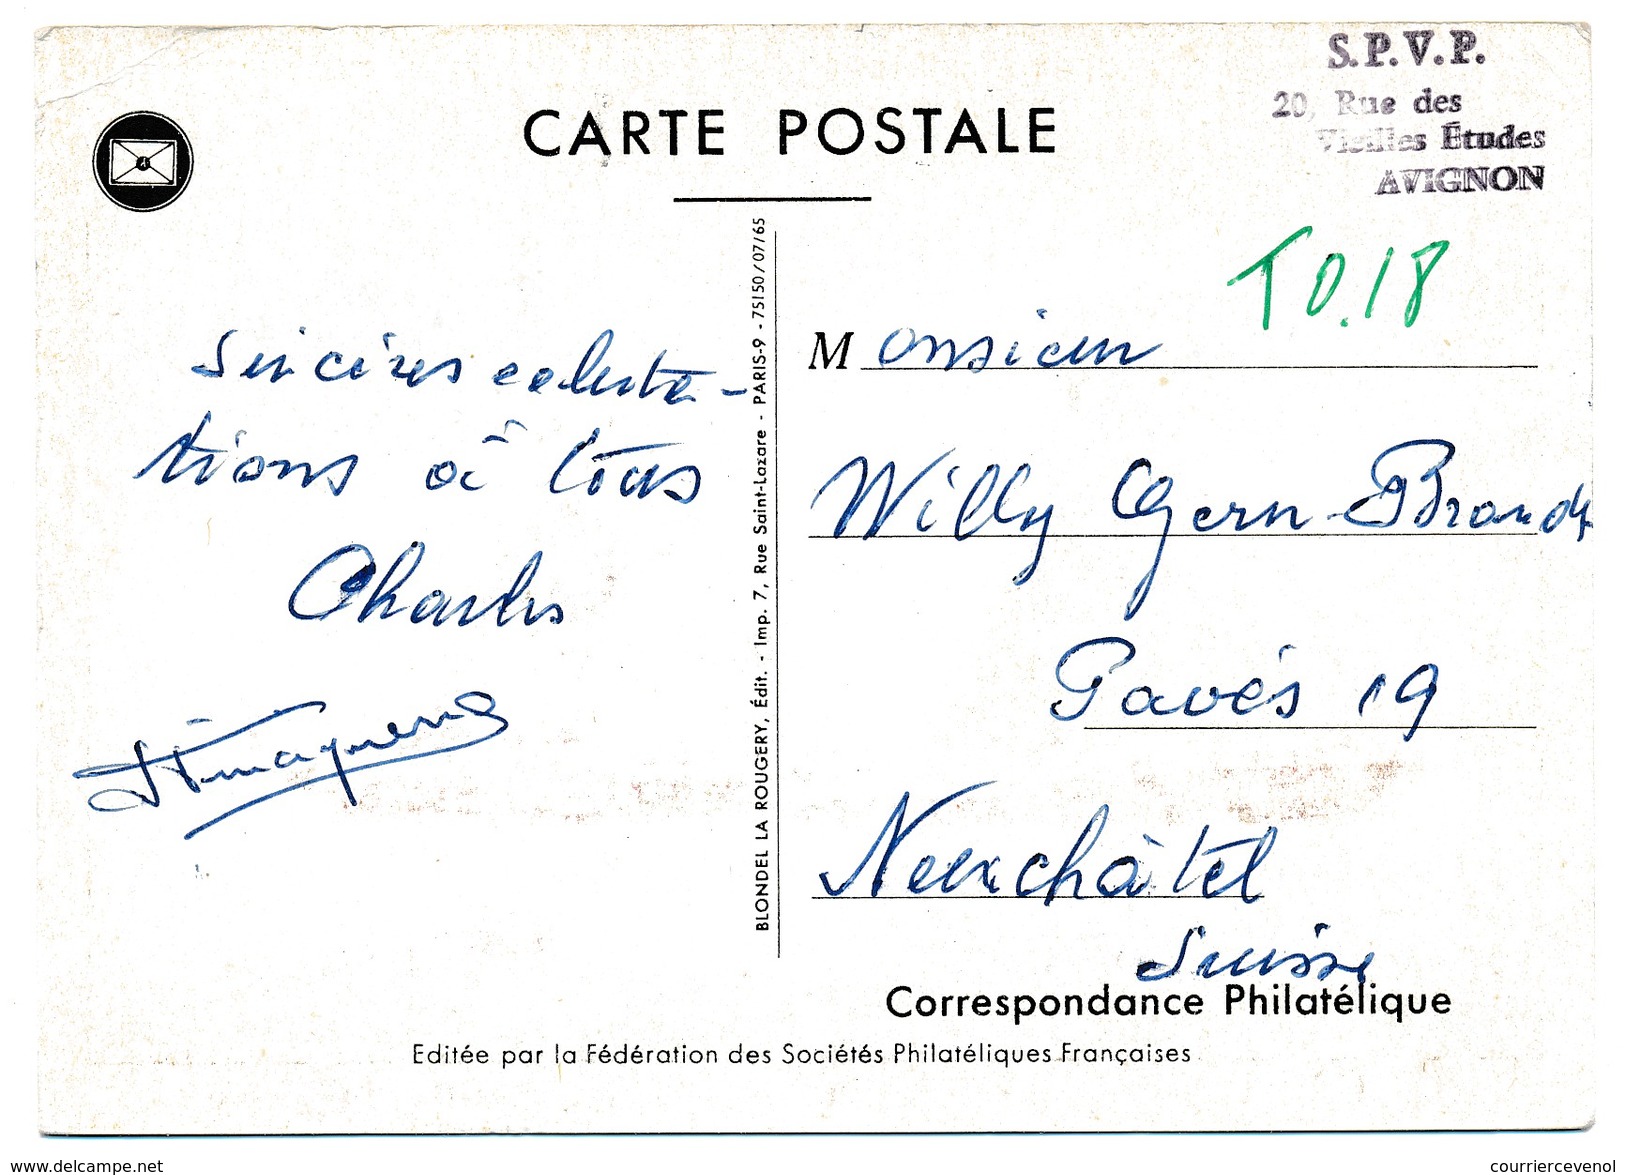 S.P.V.P.
20, Rue des
Vieilles Études
AVIGNON
CARTE POSTALE
T 0.18
Sincères
tions à tous
Charles
BLONDEL LA ROUGERY, Édit. - Imp. 7, Rue Saint-Lazare - PARIS-9 - 75150/07/65
Monsieur
Willy Gern-Brandt
Pavés 19
Neuchâtel
Suisse
Correspondance Philatélique
Editée par la Fédération des Sociétés Philatéliques Françaises
www.delcampe.net
courriercevenol